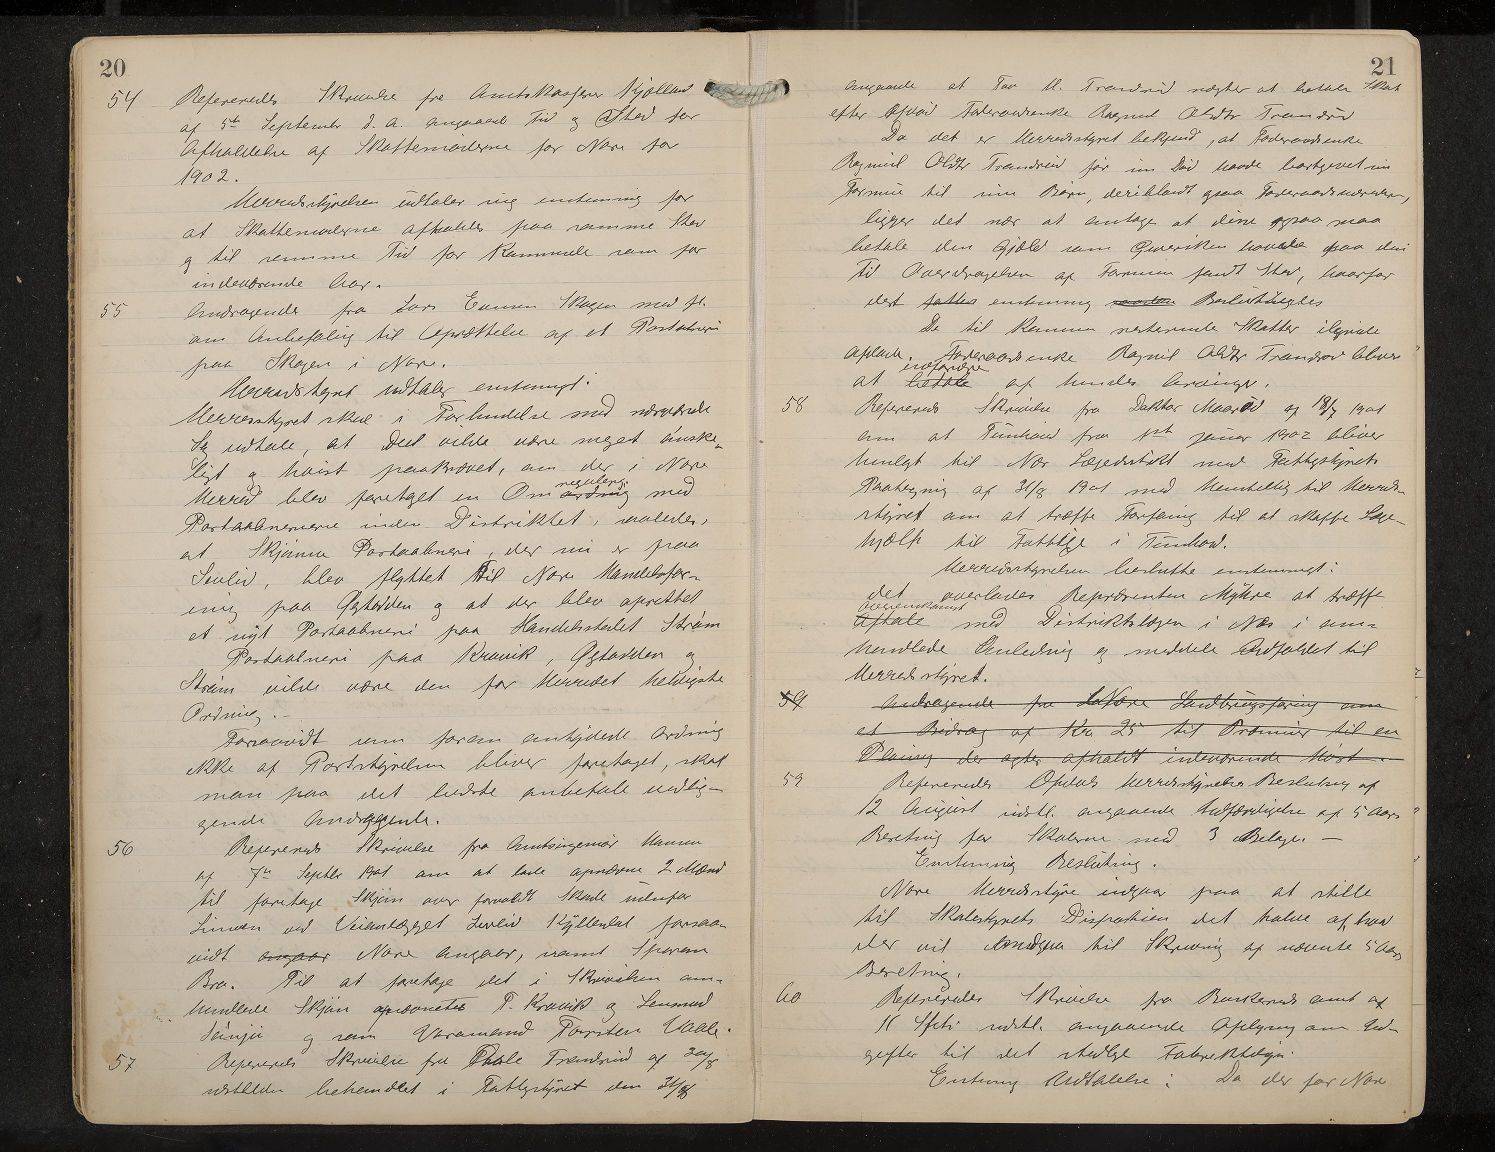 20
54 Refereredes Skrivelse fra Amtskasserer
af 5te September d. a. angaaende Tid og Sted for
Afholdelse af Skattemøderne for Nore for
1902.
Herredsstyrelsen udtaler sig enstemmig for
at Skattemøderne afholdes paa samme Sted
og til samme Tid for Kommende som for
indeværende Aar.
55 Andragende fra Lars Evensen Skogen med fl.
om Anbefaling til Oprettelse af et Postaabneri
paa Skogen i Nore.
Herredsstyret udtaler enstemmigt:
Herredsstyret skal i Forbindelse med nærværende
Sag udtale, at Det vilde være meget ønske-
ligt og høist paakrævet, om der i Nore
Herred blev foretaget en Omordning regulering med
Postaabnerierne inden Distriktet, saaledes,
at Skjønne Postaabneri, der nu er paa
Sevlid, blev flyttet til Nore Handelsfor-
ening paa Øgtedden og at der blev oprettet
et nyt Postaabneri paa Handelsstedet Strøm
Postaabneri paa Kravik, Øgtedden og
Strøm vilde være den for Herredet heldigste
Ordning. –
Forsaavidt som foran antydede Ordning
ikke af Poststyrelsen bliver foretaget, skal
man paa det bedste anbefale vedlig-
gende Andragende.
56 Refereredes Skrivelse fra Amtsingeniør Hansen
af 7de Septbr 1901 om at lade opnævne 2 Mænd
til foretage Skjøn over forvoldt Skade udenfor
Linien ved Veianlægget Sevlid Kjyllerdal forsaa-
vidt angaar Nore angaar, samt Sporan
Bro. Til at foretage det i Skrivelsen om-
handlede Skjøn opnævntes T. Kravik og
Sønsju og som Varamand Torsten Vaale.
57 Refereredes Skrivelse fra Ole Trondrud af 30/8
udstillede behandlet i Fattigstyret den 31/8
21
angaaende at Tov H. Trondrud nægter at betale Skat
efter Føderaadsenke Ragnil Oldr Trondrud
Da det er Herredsstyret bekjend, at Føderaadsenke
Ragnil Oldr Trondrud før sin Død havde bortgivet sin
Formue til sine Børn, deriblandt ogsaa Føderaadsyderen,
ligger det nær at antage at disse ogsaa maa
betale den Gjæld som Giveriken havde paa den
Tid Overdragelsen af Formuen fandt Sted, hvorfor
dert fattes enstemmig saadan Beslutning
De til Kommunen resterende Skatter ilignede
afdøde Føderaadsenke Ragnil Oldr Trondrud bliver
at betale indfordre af hendes Arvinger.
58 Refereredes Skrivelse fra Doktor Maarud af 18/7 1901
om at Tunhovd fra 1ste januar 1902 bliver
henlagt til Næs Lægedistrikt med Fattigstyrets
Paategning af 31/8 1901 med Henstilling til Herreds-
styret om at træffe Forføining til at skaffe Læge-
hjælp til Fattige i Tunhovd.
Herredsstyrelsen beslutte enstemmigt:
det overlades Repræsentan Myhre at træffe
Aftale overenskomst med Distriktslægen i Nes i om-
handlede Anledning og meddele Udfaldet til
Herredsstyret.
59 Andragende fra Nore Landbrugsforening om
et Bidrag af Kr 25 til Præmier til en
Pløining der agtes afholdt indeværende Høst –
59 Refereredes Opdals Herredsstyrelses Beslutning af
12 August sidstl. angaaende Udfærdigelse af 5 Aars
Beretning for Skolerne med 3 Bilage –
Enstemmig Beslutning.
Nore Herredsstyre indgaar paa at stille
til Skolestyrets Disposition det halve af hvad
der vil medgaa til Skrivning af nævnte 5 Aars
Beretning.
60 Refereredes Skrivelse fra Buskeruds amt af
11 Spt. sidstl. angaaende Oplysning om Ud-
gifter til det stedlige Fabriktilsyn.
Enstemmig Udtalelse: Da der for Nore